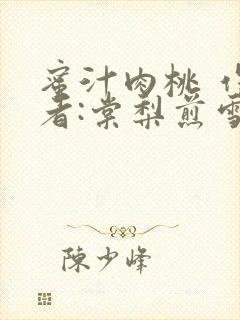 蜜汁肉桃
者:棠梨煎雪
陳少峰